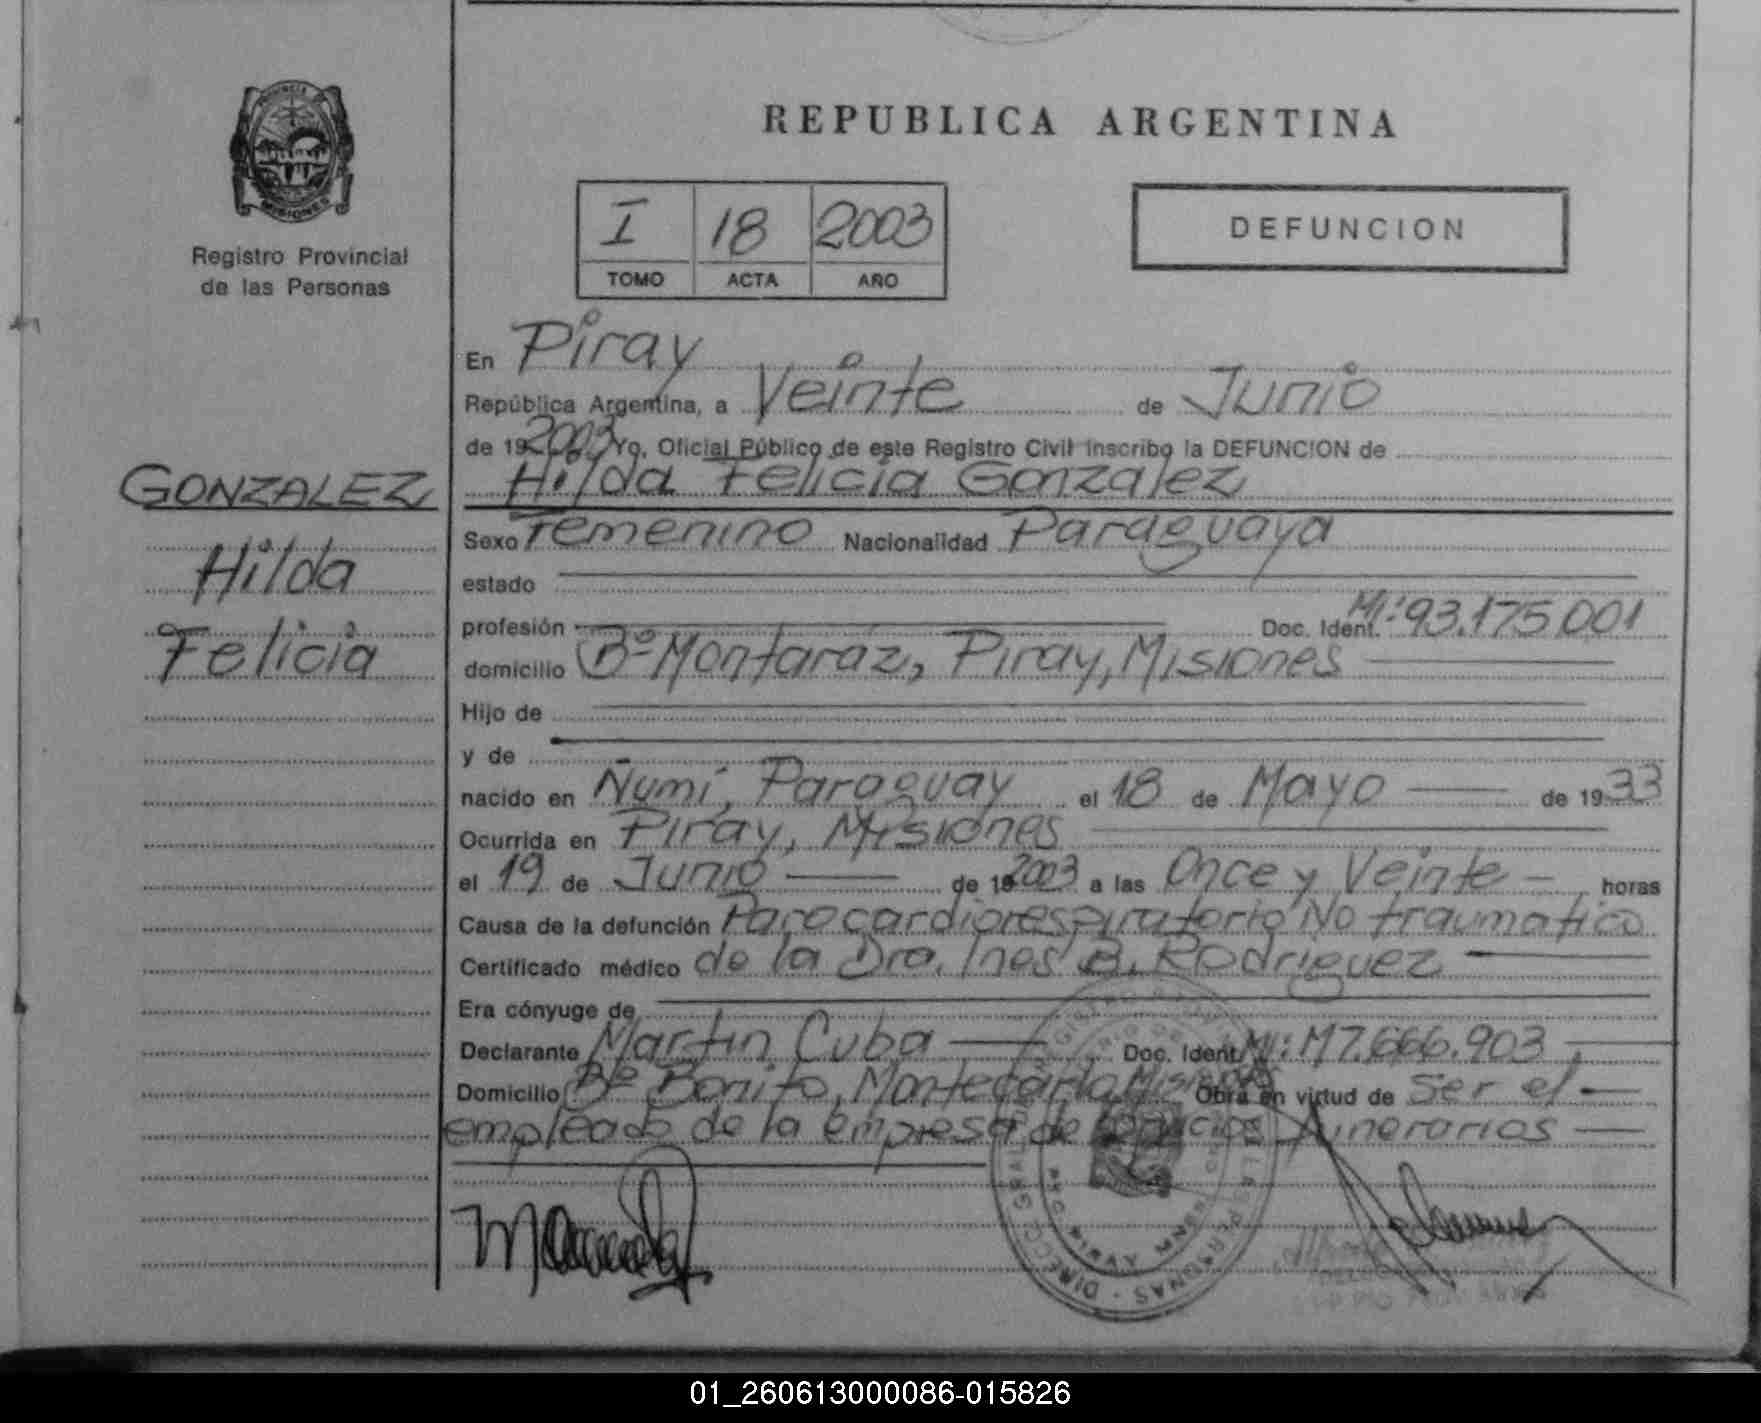 REPUBLICA ARGENTINA
PROVINCIA DE
MISIONES
Registro Provincial
de las Personas
I 18 2003
TOMO ACTA AÑO
DEFUNCION
En Piray
República Argentina, a Veinte de Junio
de 19 2003 Yo, Oficial Público de este Registro Civil inscribo la DEFUNCION de
Hilda Felicia Gonzalez
GONZALEZ
Hilda
Felicia
Sexo Femenino Nacionalidad Paraguaya
estado
profesión Doc. Ident. MI: 93.175.001
domicilio Bº Montaraz, Piray, Misiones
Hijo de
y de
nacido en Ñumi, Paraguay el 18 de Mayo de 1933
Ocurrida en Piray, Misiones
el 19 de Junio de 19 2003 a las Once y Veinte horas
Causa de la defunción Parocardiorespiratorio No traumatico
Certificado médico de la Dra. Ines B. Rodriguez
Era cónyuge de
Declarante Martin Cuba Doc. Ident. MI: M7.666.903,
Domicilio Bº Bonito, Montecarlo, Misiones Obra en virtud de Ser el
empleado de la empresa de servicios funerarios
01_260613000086-015826